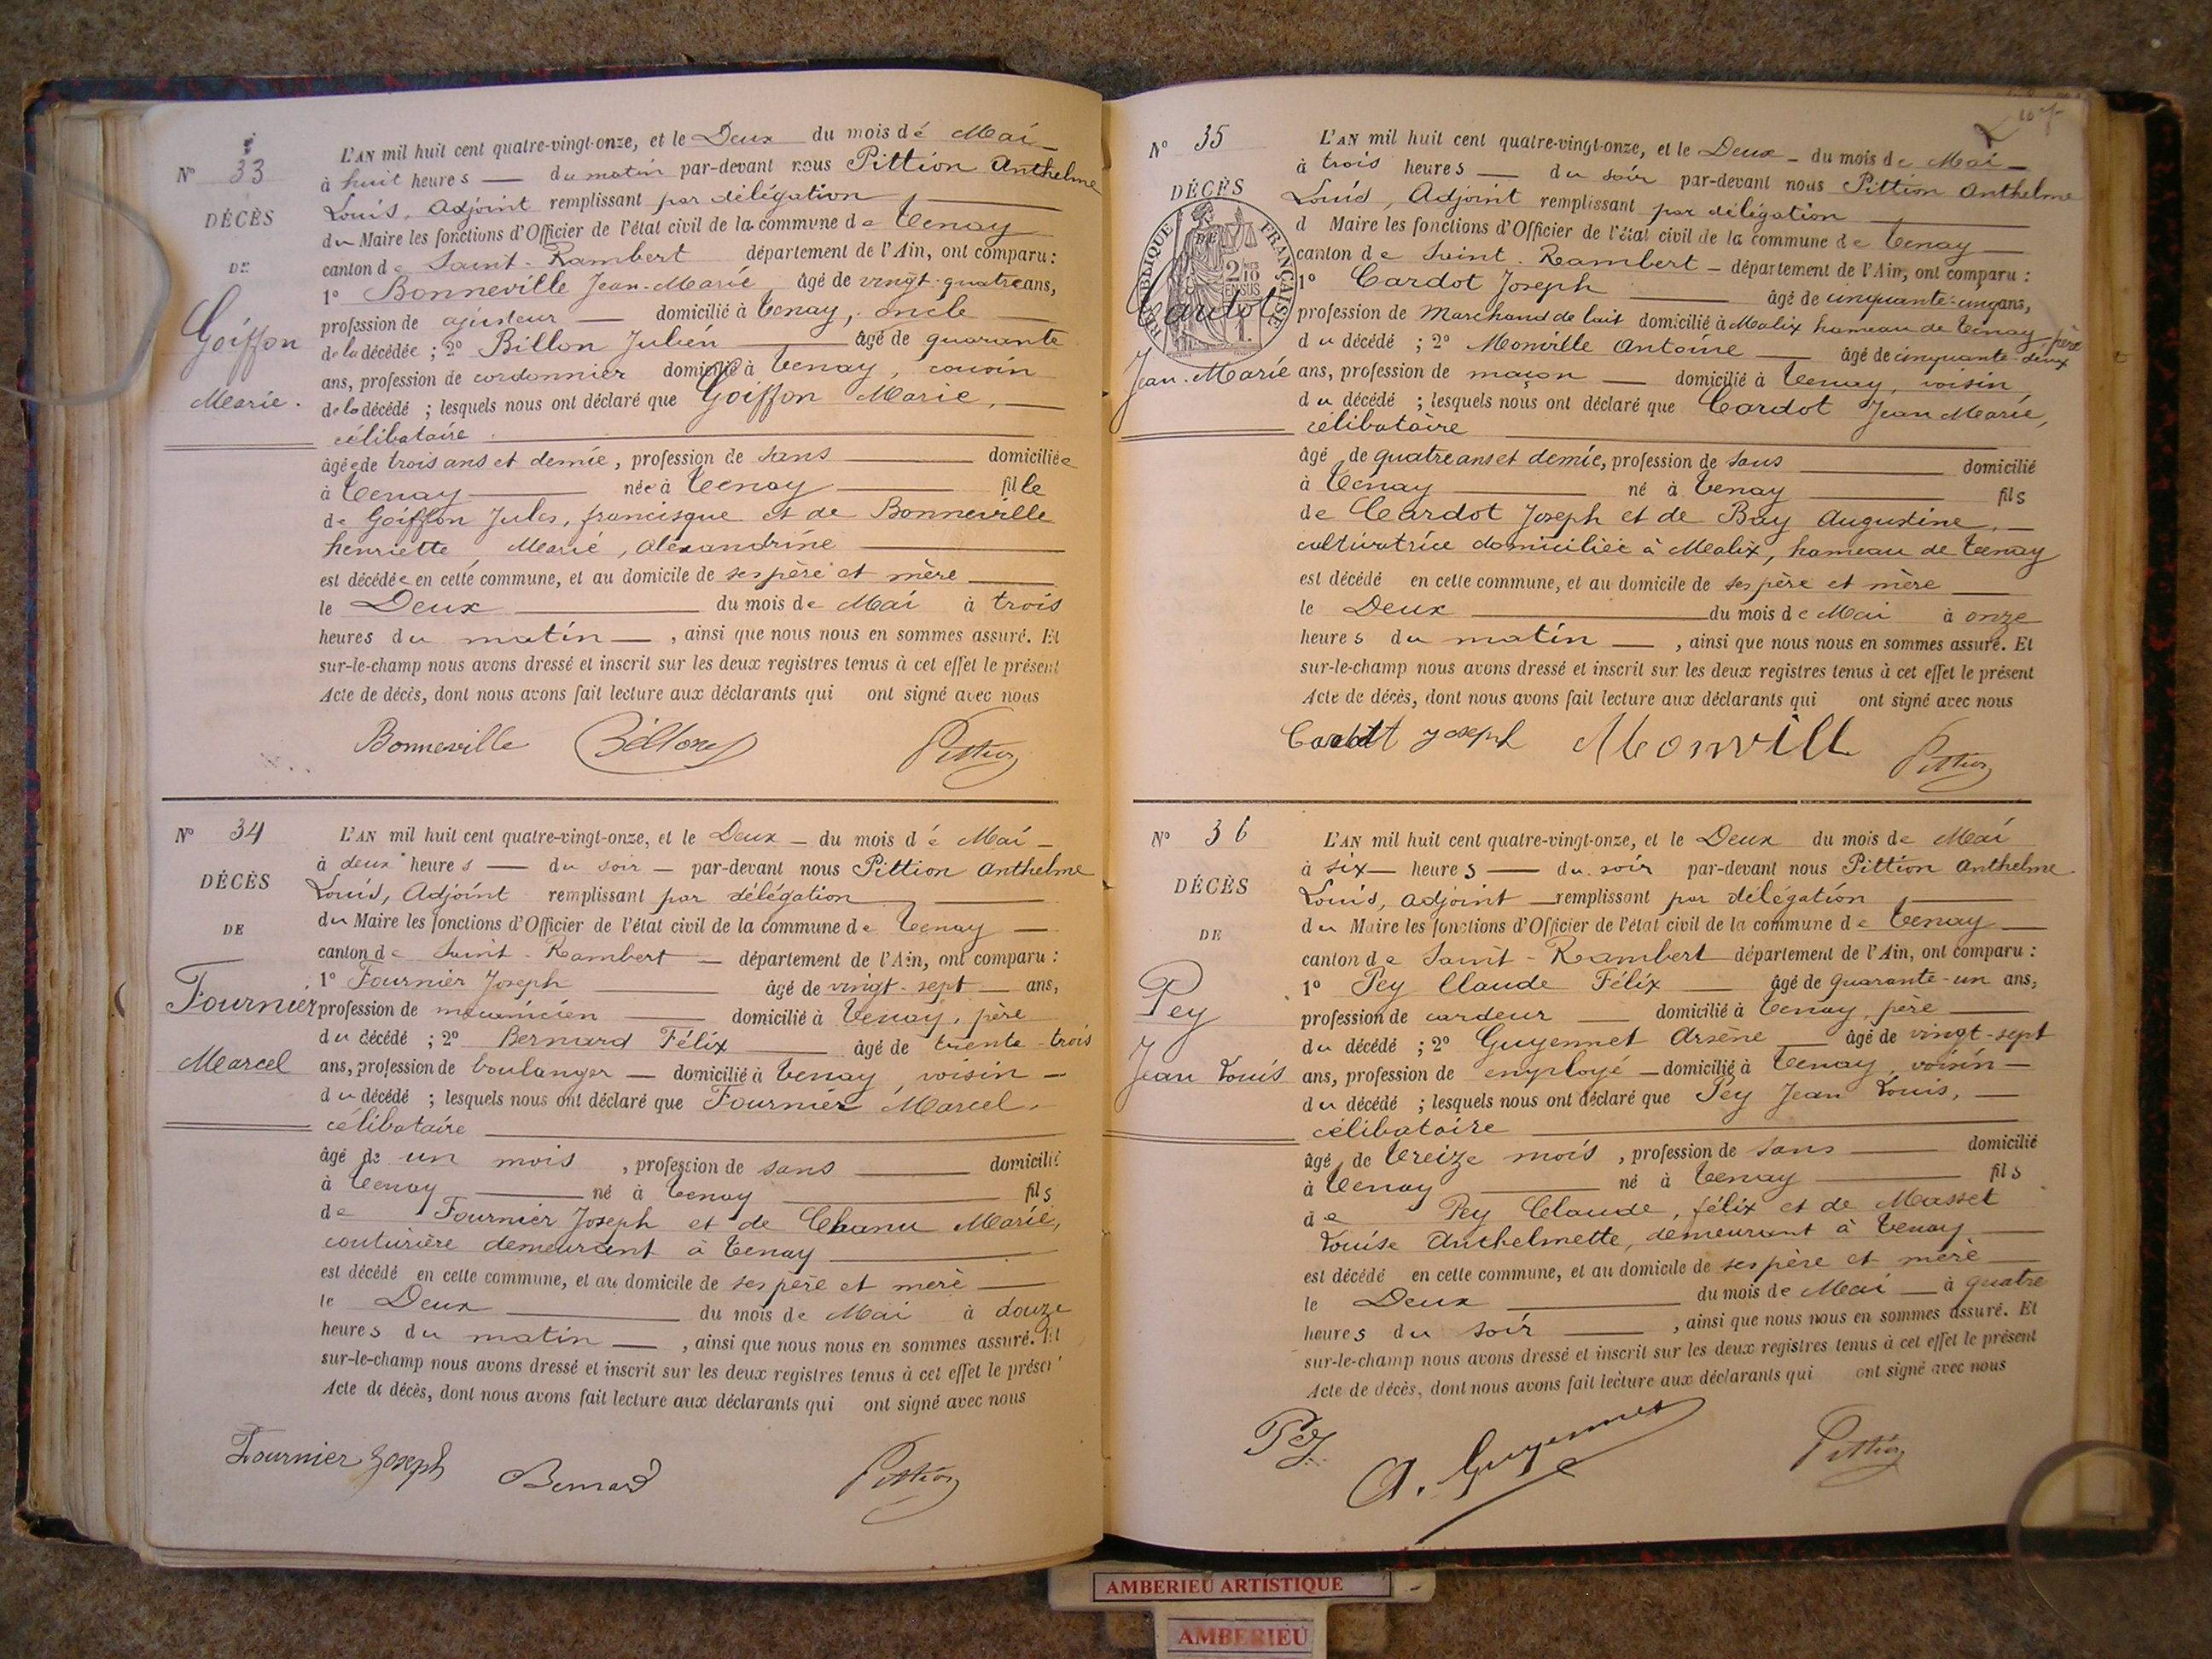 N° 33
DÉCÈS
DE
Goiffon
Marie.
L'AN mil huit cent quatre-vingt-onze, et le Deux du mois de Mai
à huit heures du matin par-devant nous Pittion Anthelme
Louis, Adjoint remplissant par délégation
du Maire les fonctions d'Officier de l'état civil de la commune de Tenay
canton de Saint-Rambert département de l'Ain, ont comparu :
1° Bonneville Jean-Marie, âgé de vingt-quatre ans,
profession de ajusteur domicilié à Tenay, oncle
de la décédée ; 2° Billon Julien âgé de quarante
ans, profession de cordonnier domicilié à Tenay, cousin
de la décédé ; lesquels nous ont déclaré que Goiffon Marie,
célibataire
âgée de trois ans et demie, profession de sans domiciliée
à Tenay née à Tenay fille
de Goiffon Jules, francisque et de Bonneville
henriette Marie, Alexandrine
est décédée en cette commune, et au domicile de ses père et mère
le Deux du mois de Mai à trois
heures du matin, ainsi que nous nous en sommes assuré. Et
sur-le-champ nous avons dressé et inscrit sur les deux registres tenus à cet effet le présent
Acte de décès, dont nous avons fait lecture aux déclarants qui ont signé avec nous
Bonneville Billon Pittion
N° 34
DÉCÈS
DE
Fournier
Marcel
L'AN mil huit cent quatre-vingt-onze, et le Deux du mois de Mai
à deux heures du soir par-devant nous Pittion Anthelme
Louis, Adjoint remplissant par délégation
du Maire les fonctions d'Officier de l'état civil de la commune de Tenay
canton de Saint-Rambert département de l'Ain, ont comparu :
1° Fournier Joseph âgé de vingt-sept ans,
profession de mécanicien domicilié à Tenay, père
du décédé ; 2° Bernard Félix âgé de trente-trois
ans, profession de boulanger domicilié à Tenay, voisin
du décédé ; lesquels nous ont déclaré que Fournier Marcel,
célibataire
âgé de un mois, profession de sans domicilié
à Tenay né à Tenay fils
de Fournier Joseph et de Chanu Marie,
couturière demeurant à Tenay
est décédé en cette commune, et au domicile de ses père et mère
le Deux du mois de Mai à douze
heures du matin, ainsi que nous nous en sommes assuré. Et
sur-le-champ nous avons dressé et inscrit sur les deux registres tenus à cet effet le présent
Acte de décès, dont nous avons fait lecture aux déclarants qui ont signé avec nous
Fournier Joseph Bernard Pittion
N° 35
DÉCÈS
DE
RÉPUBLIQUE FRANÇAISE
2/10 EN SUS
Cardot
Jean-Marie
L'AN mil huit cent quatre-vingt-onze, et le Deux du mois de Mai
à trois heures du soir par-devant nous Pittion Anthelme
Louis, Adjoint remplissant par délégation
d Maire les fonctions d'Officier de l'état civil de la commune de Tenay
canton de Saint-Rambert département de l'Ain, ont comparu :
1° Cardot Joseph âgé de cinquante-cinq ans,
profession de Marchand de lait domicilié à Malix hameau de Tenay père
du décédé ; 2° Monville Antoine âgé de cinquante-deux
ans, profession de maçon domicilié à Tenay, voisin
du décédé ; lesquels nous ont déclaré que Cardot Jean Marie,
célibataire
âgé de quatre ans et demie, profession de sans domicilié
à Tenay né à Tenay fils
de Cardot Joseph et de Bay Augustine,
cultivatrice domiciliée à Malix, hameau de Tenay
est décédé en cette commune, et au domicile de ses père et mère
le Deux du mois de Mai à onze
heures du matin, ainsi que nous nous en sommes assuré. Et
sur-le-champ nous avons dressé et inscrit sur les deux registres tenus à cet effet le présent
Acte de décès, dont nous avons fait lecture aux déclarants qui ont signé avec nous
Joseph Monvill Pittion
N° 36
DÉCÈS
DE
Pey
Jean Louis
L'AN mil huit cent quatre-vingt-onze, et le Deux du mois de Mai
à six heures du soir par-devant nous Pittion Anthelme
Louis, adjoint remplissant par délégation
du Maire les fonctions d'Officier de l'état civil de la commune de Tenay
canton de Saint-Rambert département de l'Ain, ont comparu :
1° Pey Claude Félix âgé de quarante-un ans,
profession de cardeur domicilié à Tenay, père
du décédé ; 2° Guyennet Arsène âgé de vingt-sept
ans, profession de employé domicilié à Tenay, voisin
du décédé ; lesquels nous ont déclaré que Pey Jean Louis,
célibataire
âgé de treize mois, profession de sans domicilié
à Tenay né à Tenay fils
de Pey Claude, félix et de Masset
Louise Anthelmette, demeurant à Tenay
est décédé en cette commune, et au domicile de ses père et mère
le Deux du mois de Mai à quatre
heures du soir, ainsi que nous nous en sommes assuré. Et
sur-le-champ nous avons dressé et inscrit sur les deux registres tenus à cet effet le présent
Acte de décès, dont nous avons fait lecture aux déclarants qui ont signé avec nous
Pey A. Guyennet Pittion
AMBERIEU ARTISTIQUE
AMBERIEU